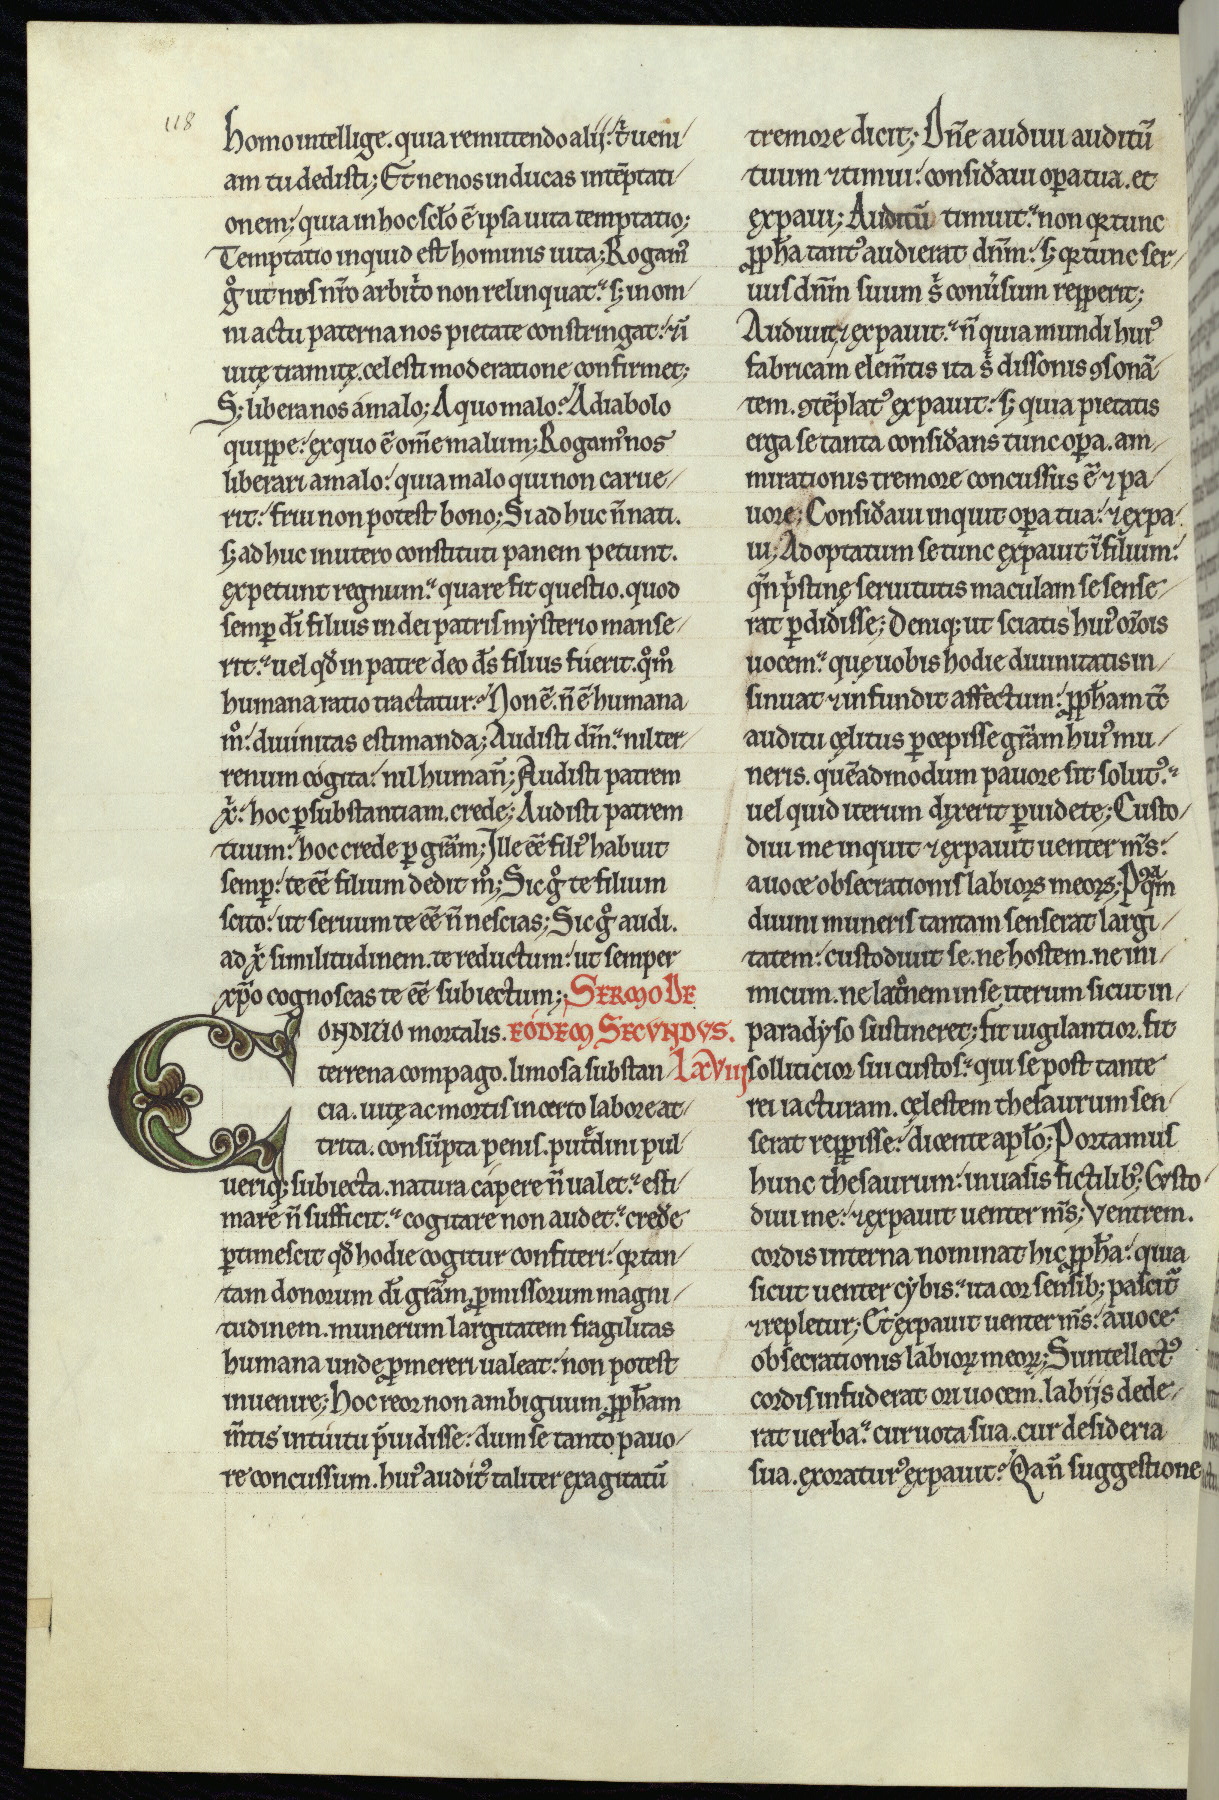 118
homo intellige. quia remittendo alij: t̾ ueni/
am tu dedisti; Et ne nos inducas intēptati/
onem; quia in hoc scło ē ipsa uita temptatio;
Temptatio inquid est hominis uita; Rogamꝰ
g̊ ut nos nr̄o arbitͥo non relinquat. s; in om/
ni actu paterna nos pietate constringat: ⁊ ī
uitę tramitę. celesti moderatione confirmet;
S; libera nos a malo; A quo malo? A diabolo
quippe: ex quo ē om̄e malum; Rogamꝰ nos
liberari a malo: quia malo qui non carue/
rit: frui non potest bono; Si adhuc n̄ nati.
s; adhuc in utero constituti panem petunt.
expetunt regnum. quare fit questio. quod
semꝑ dī filius in dei patris mẏsterio manse/
rit. uel qđ in patre deo ds̄ filius fuerit. qͦmͦ
humana ratio tractatur? Non ē. n̄ ē humana
mͦ: diuinitas estimanda; Audisti dn̄m. nil ter/
renum cogita: nil humañ; Audisti patrem
xͥ: hoc ꝑ substantiam. crede; Audisti patrem
tuum: hoc crede ꝑ gr̄am; Ille eē filiꝰ habuit
semꝑ: te eē filium dedit mͦ; Sic g̊ te filium
scito: ut seruum te eē n̄ nescias; Sic g̊ audi.
ad xͥ similitudinem. te reductum: ut semper
xp̄o cognoscas te eē subiectum; SERMO DE
CONDITIO mortalis. EODEM SECVNDVS.
terrena compago. limosa substan/ LXVIIJ
cia. uitę ac mortis incerto labore at/
trita. consūpta penis. put̾dini pul/
ueriq; subiecta. natura capere n̄ ualet. esti/
mare n̄ sufficit. cogitare non audet. crede͛
ꝑtimescit qđ hodie cogitur confiteri: q̱ tan/
tam donorum dī gr̄am. ꝓmissorum magni/
tudinem. munerum largitatem fragilitas
humana unde ꝓmereri ualeat: non potest
inuenire; Hoc reor non ambiguum. ꝓpħam
m̄tis intuitu p̄uidisse: dum se tanto pauo/
re concussum. huiꝰ auditꝰ taliter exagitatū
tremore dicit; Dn̄e audiui auditū
tuum ⁊ timui: considͣaui oꝑa tua. et
expaui; Auditū timuit. non q̱ tunc
ꝓpħa tantꝰ audierat dn̄m: s; q̱ tunc ser/
uus dn̄m suum s̾ conūsum repperit;
Audiuit ⁊ expauit. n̄ quia mundi huiꝰ
fabricam elem̄tis ita s̾ dissonis ꝯsonā/
tem. ꝯtēplatꝰ expauit: s; quia pietatis
erga se tanta considͣans tunc oꝑa. am/
mirationis tremore concussus ē ⁊ pa/
uore; Considͣaui inquit oꝑa tua: ⁊ expa/
ui; Adoptatum se tunc expauit ī filium:
qn̄ pͥstinę seruitutis maculam se sense/
rat ꝑdidisse; Deniq; ut sciatis huiꝰ or̄ois
uocem. quę uobis hodie diuinitatis in/
sinuat ⁊ infundit affectum: ꝓpħam tc̄
auditu cęlitus ꝑcepisse gr̄am huiꝰ mu/
neris. quēadmodum pauore sit solutꝰ.
uel quid iterum dixerit ꝓuidete; Custo/
diui me inquit ⁊ expauit uenter m̄s:
a uoce obsecrationis labiorꝝ meorꝝ; Pꝰqͣm
diuini muneris tantam senserat largi/
tatem: custodiuit se. ne hostem. ne ini/
micum. ne latͦnem in se iterum sicut in/
paradẏso sustineret; fit uigilantior. fit
sollicitior sui custos. qui se post tante
rei iacturam. cęlestem thesaurum sen/
serat repperisse: dicente apło; Portamus
hunc thesaurum: in uasis fictilibꝰ; Custo/
diui me: ⁊ expauit uenter m̄s; Ventrem.
cordis interna nominat hic ꝓpħa: quia
sicut uenter cẏbis. ita cor sensib; pascit̾
⁊ repletur; Et expauit uenter m̄s: a uoce
obsecrationis labioꝝ meoꝝ; Si intellectꝰ
cordis infuderat ori uocem. labijs dede/
rat uerba. cur uota sua. cur desideria
sua. exoraturꝰ expauit? Qañ suggestione